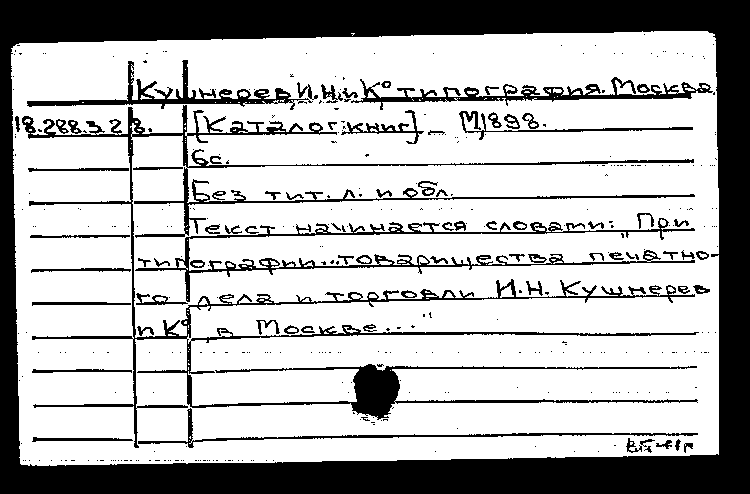 Кушнерев, И.Н. и К° типография. Москва
18.288.3.28. [Каталог книг]. _ М, 1898.
6с.
Без тит. л. и обл.
Текст начинается словами: „При
типографии...товарищества печатно-
го дела и торговли И.Н. Кушнерев
и К°, в Москве..."